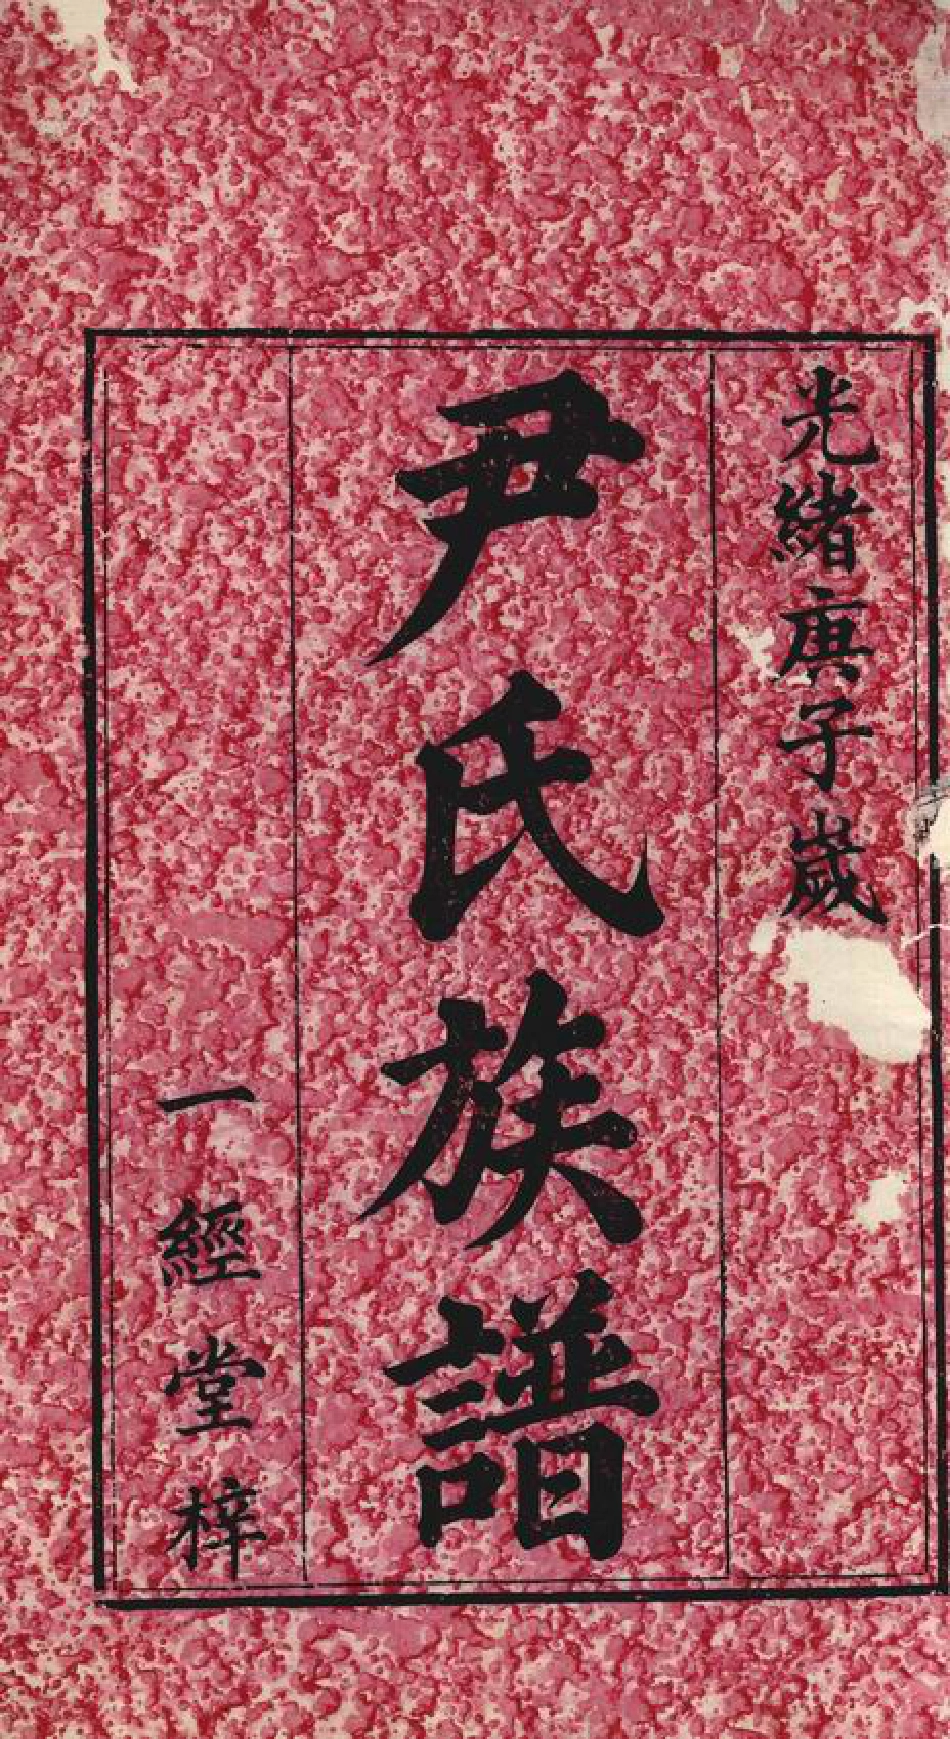 光緒庚子歲
尹氏族譜
一經堂梓